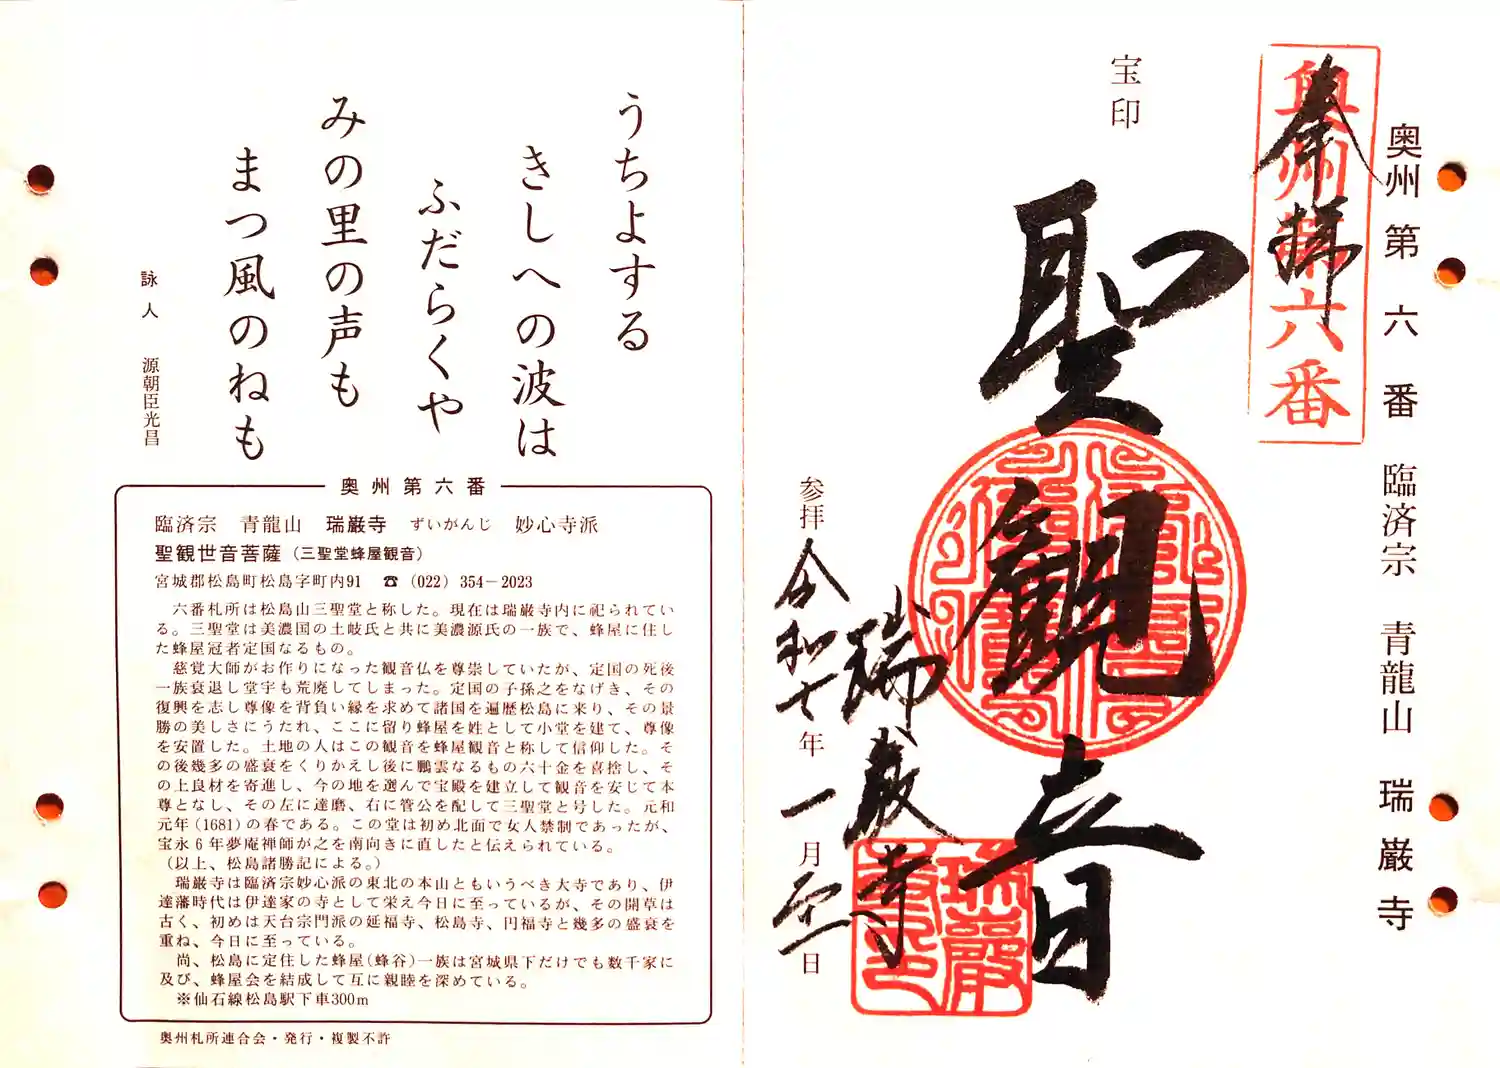 奥州第六番 臨済宗 青龍山 瑞巌寺
奥州第六番
奉拝
宝印
聖観音
瑞巌寺
参拝 令和七年一月
日
うちよする
きしへの波は
ふだらくや
みの里の声も
まつ風のねも
詠人 源朝臣光昌
奥州第六番
臨済宗 青龍山 瑞巌寺 ずいがんじ 妙心寺派
聖観世音菩薩(三聖堂蜂屋観音)
宮城郡松島町松島字町内91 ☎(022)354-2023
六番札所は松島山三聖堂と称した。現在は瑞巌寺内に祀られてい
る。三聖堂は美濃国の土岐氏と共に美濃源氏の一族で、蜂屋に住し
た蜂屋冠者定国なるもの。
慈覚大師がお作りになった観音仏を尊崇していたが、定国の死後
一族衰退し堂宇も荒廃してしまった。定国の子孫之をなげき、その
復興を志し尊像を背負い縁を求めて諸国を遍歴松島に来り、その景
勝の美しさにうたれ、ここに留り蜂屋を姓として小堂を建て、尊像
を安置した。土地の人はこの観音を蜂屋観音と称して信仰した。そ
の後幾多の盛衰をくりかえし後に鵬雲なるもの六十金を喜捨し、そ
の上良材を寄進し、今の地を選んで宝殿を建立して観音を安じて本
尊となし、その左に達磨、右に管公を配して三聖堂と号した。元和
元年(1681)の春である。この堂は初め北面で女人禁制であったが、
宝永6年夢庵禅師が之を南向きに直したと伝えられている。
(以上、松島諸勝記による。)
瑞巌寺は臨済宗妙心派の東北の本山ともいうべき大寺であり、伊
達藩時代は伊達家の寺として栄え今日に至っているが、その開草は
古く、初めは天台宗門派の延福寺、松島寺、円福寺と幾多の盛衰を
重ね、今日に至っている。
尚、松島に定住した蜂屋(蜂谷)一族は宮城県下だけでも数千家に
及び、蜂屋会を結成して互に親睦を深めている。
※仙石線松島駅下車300m
奥州札所連合会・発行・複製不許